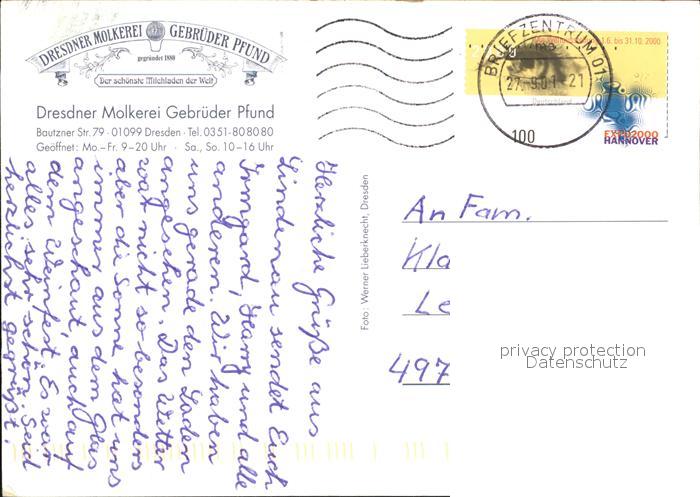 DRESDNER MOLKEREI GEBRÜDER PFUND
gegründet 1880
Der schönste Milchladen der Welt
Dresdner Molkerei Gebrüder Pfund
Bautzner Str. 79 · 01099 Dresden · Tel. 0351-80 80 80
Geöffnet: Mo.–Fr. 9–20 Uhr · Sa., So. 10–16 Uhr
Herzliche Grüße aus
Lindenau sendet Euch
Irmgard, Harry und alle
anderen. Wir haben
uns gerade den Laden
angesehen. Das Wetter
war nicht so besonders
aber die Sonne hat uns
immer aus dem Glas
angeschaut, auch auf
dem Weinfest. Es war
alles sehr schön. Seid
herzlichst gegrüßt!
Foto: Werner Lieberknecht, Dresden
BRIEFZENTRUM 01
27.9.01-21
100
1.6. bis 31.10.2000
Deutschland
EXPO2000
HANNOVER
An Fam.
Kla
Le
497
privacy protection
Datenschutz